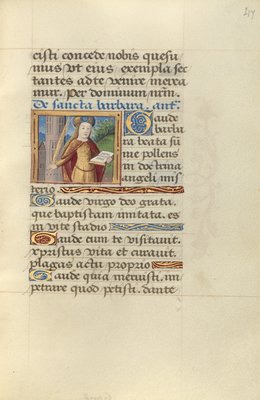 cisti concede nobis quesu
mus ut eius exempla sec
tantes ad te venire merea
mur. Per dominum nrm̃.
De sancta barbara. antᵃ.
Gaude
barba
ra beata sũ
me pollens
in doctrina
angeli mis
terio.
Gaude virgo deo grata.
que baptistam imitata. es
in vite stadio
Gaude cum te visitavit.
xpristus vita et curavit.
plagas actu proprio
Gaude quia meruisti. im
petrare quod petisti. dante